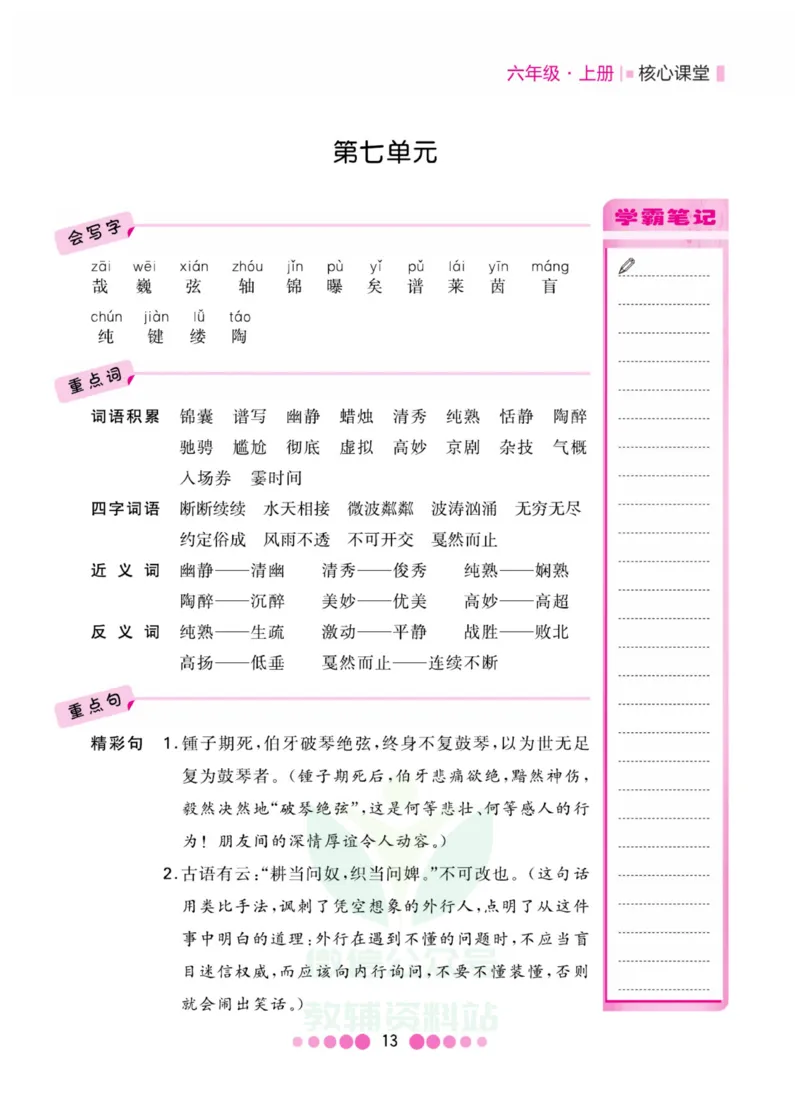 六年级·上册 核心课堂
第七单元
会写字
zāi wēi xián zhóu jǐn pù yǐ pǔ lái yīn máng
哉 巍 弦 轴 锦 曝 矣 谱 莱 茵 盲
chún jiàn lǚ táo
纯 键 缕 陶
重点词
词语积累 锦囊 谱写 幽静 蜡烛 清秀 纯熟 恬静 陶醉
驰骋 尴尬 彻底 虚拟 高妙 京剧 杂技 气概
入场券 霎时间
四字词语 断断续续 水天相接 微波粼粼 波涛汹涌 无穷无尽
约定俗成 风雨不透 不可开交 戛然而止
近义词 幽静——清幽 清秀——俊秀 纯熟——娴熟
陶醉——沉醉 美妙——优美 高妙——高超
反义词 纯熟——生疏 激动——平静 战胜——败北
高扬——低垂 戛然而止——连续不断
重点句
精彩句 1.锺子期死,伯牙破琴绝弦,终身不复鼓琴,以为世无足
复为鼓琴者。(锺子期死后,伯牙悲痛欲绝,黯然神伤,
毅然决然地“破琴绝弦”,这是何等悲壮、何等感人的行
为!朋友间的深情厚谊令人动容。)
2.古语有云:“耕当问奴,织当问婢。”不可改也。(这句话
用类比手法,讽刺了凭空想象的外行人,点明了从这件
事中明白的道理:外行在遇到不懂的问题时,不应当盲
目迷信权威,而应该向内行询问,不要不懂装懂,否则
就会闹出笑话。)
学霸笔记
微信公众号
教辅资料站
13